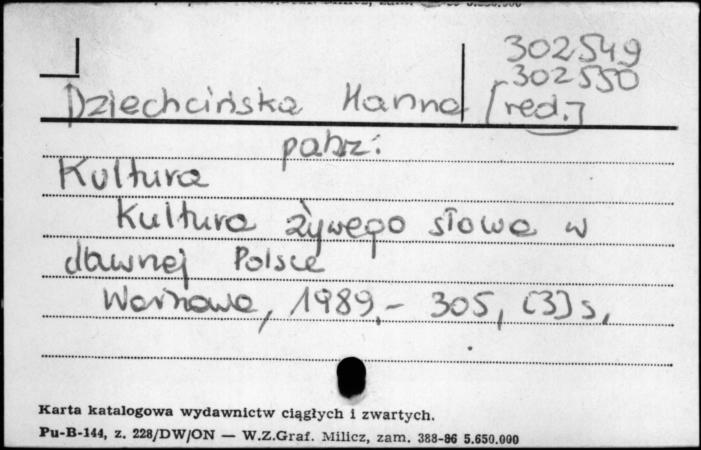 302549
302550
Dziechcińska Hanna [red.]
patrz:
Kultura
Kultura żywego słowa w
dawnej Polsce
Warszawa, 1989.- 305, [3] s.
Karta katalogowa wydawnictw ciągłych i zwartych.
Pu-B-144, z. 228/DW/ON — W.Z.Graf. Milicz, zam. 388-86 5.650.000